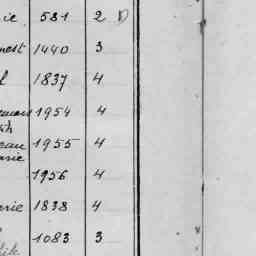 ie 581 2 D
nest 1440 3
l 1837 4
1954 4
eau 1955 4
rie
1956 4
erie 1838 4
1083 3